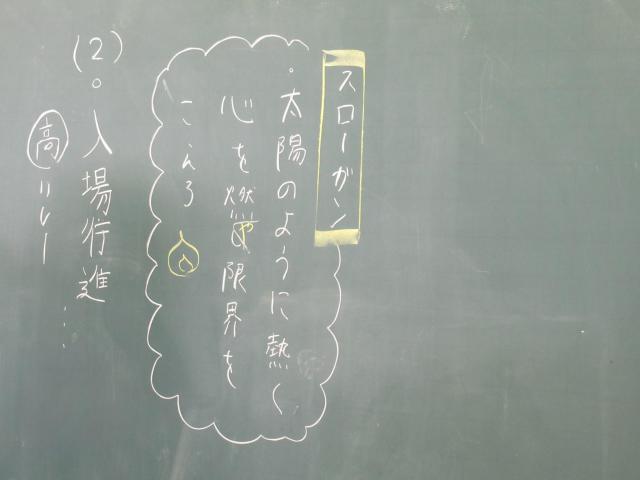 スローガン
・太陽のように熱く
心を燃や限界を
こえろ
(2)。入場行進…
高リレー